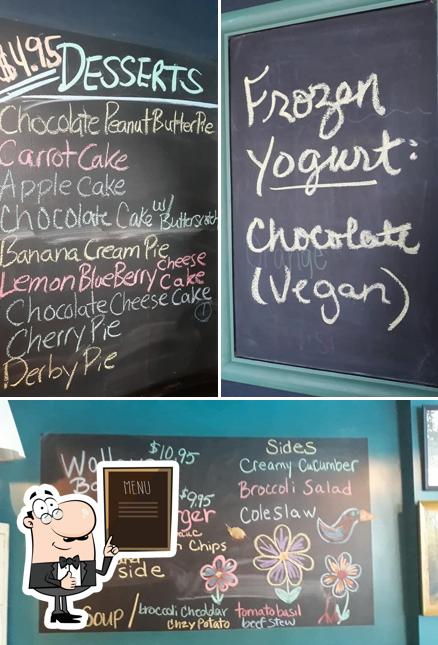 $4.95
DESSERTS
Chocolate Peanut Butter Pie
Carrot Cake
Apple Cake
Chocolate Cake w/ Butterscotch
Banana Cream Pie
Lemon BlueBerry Cheese Cake
Chocolate Cheese Cake 1
Cherry Pie
Derby Pie
Frozen
Yogurt:
Chocolate
(Vegan)
$10.95
$9.95
Chips
side
MENU
Sides
Creamy Cucumber
Broccoli Salad
Coleslaw
Soup / broccoli cheddar tomato basil
Chzy Potato beef stew